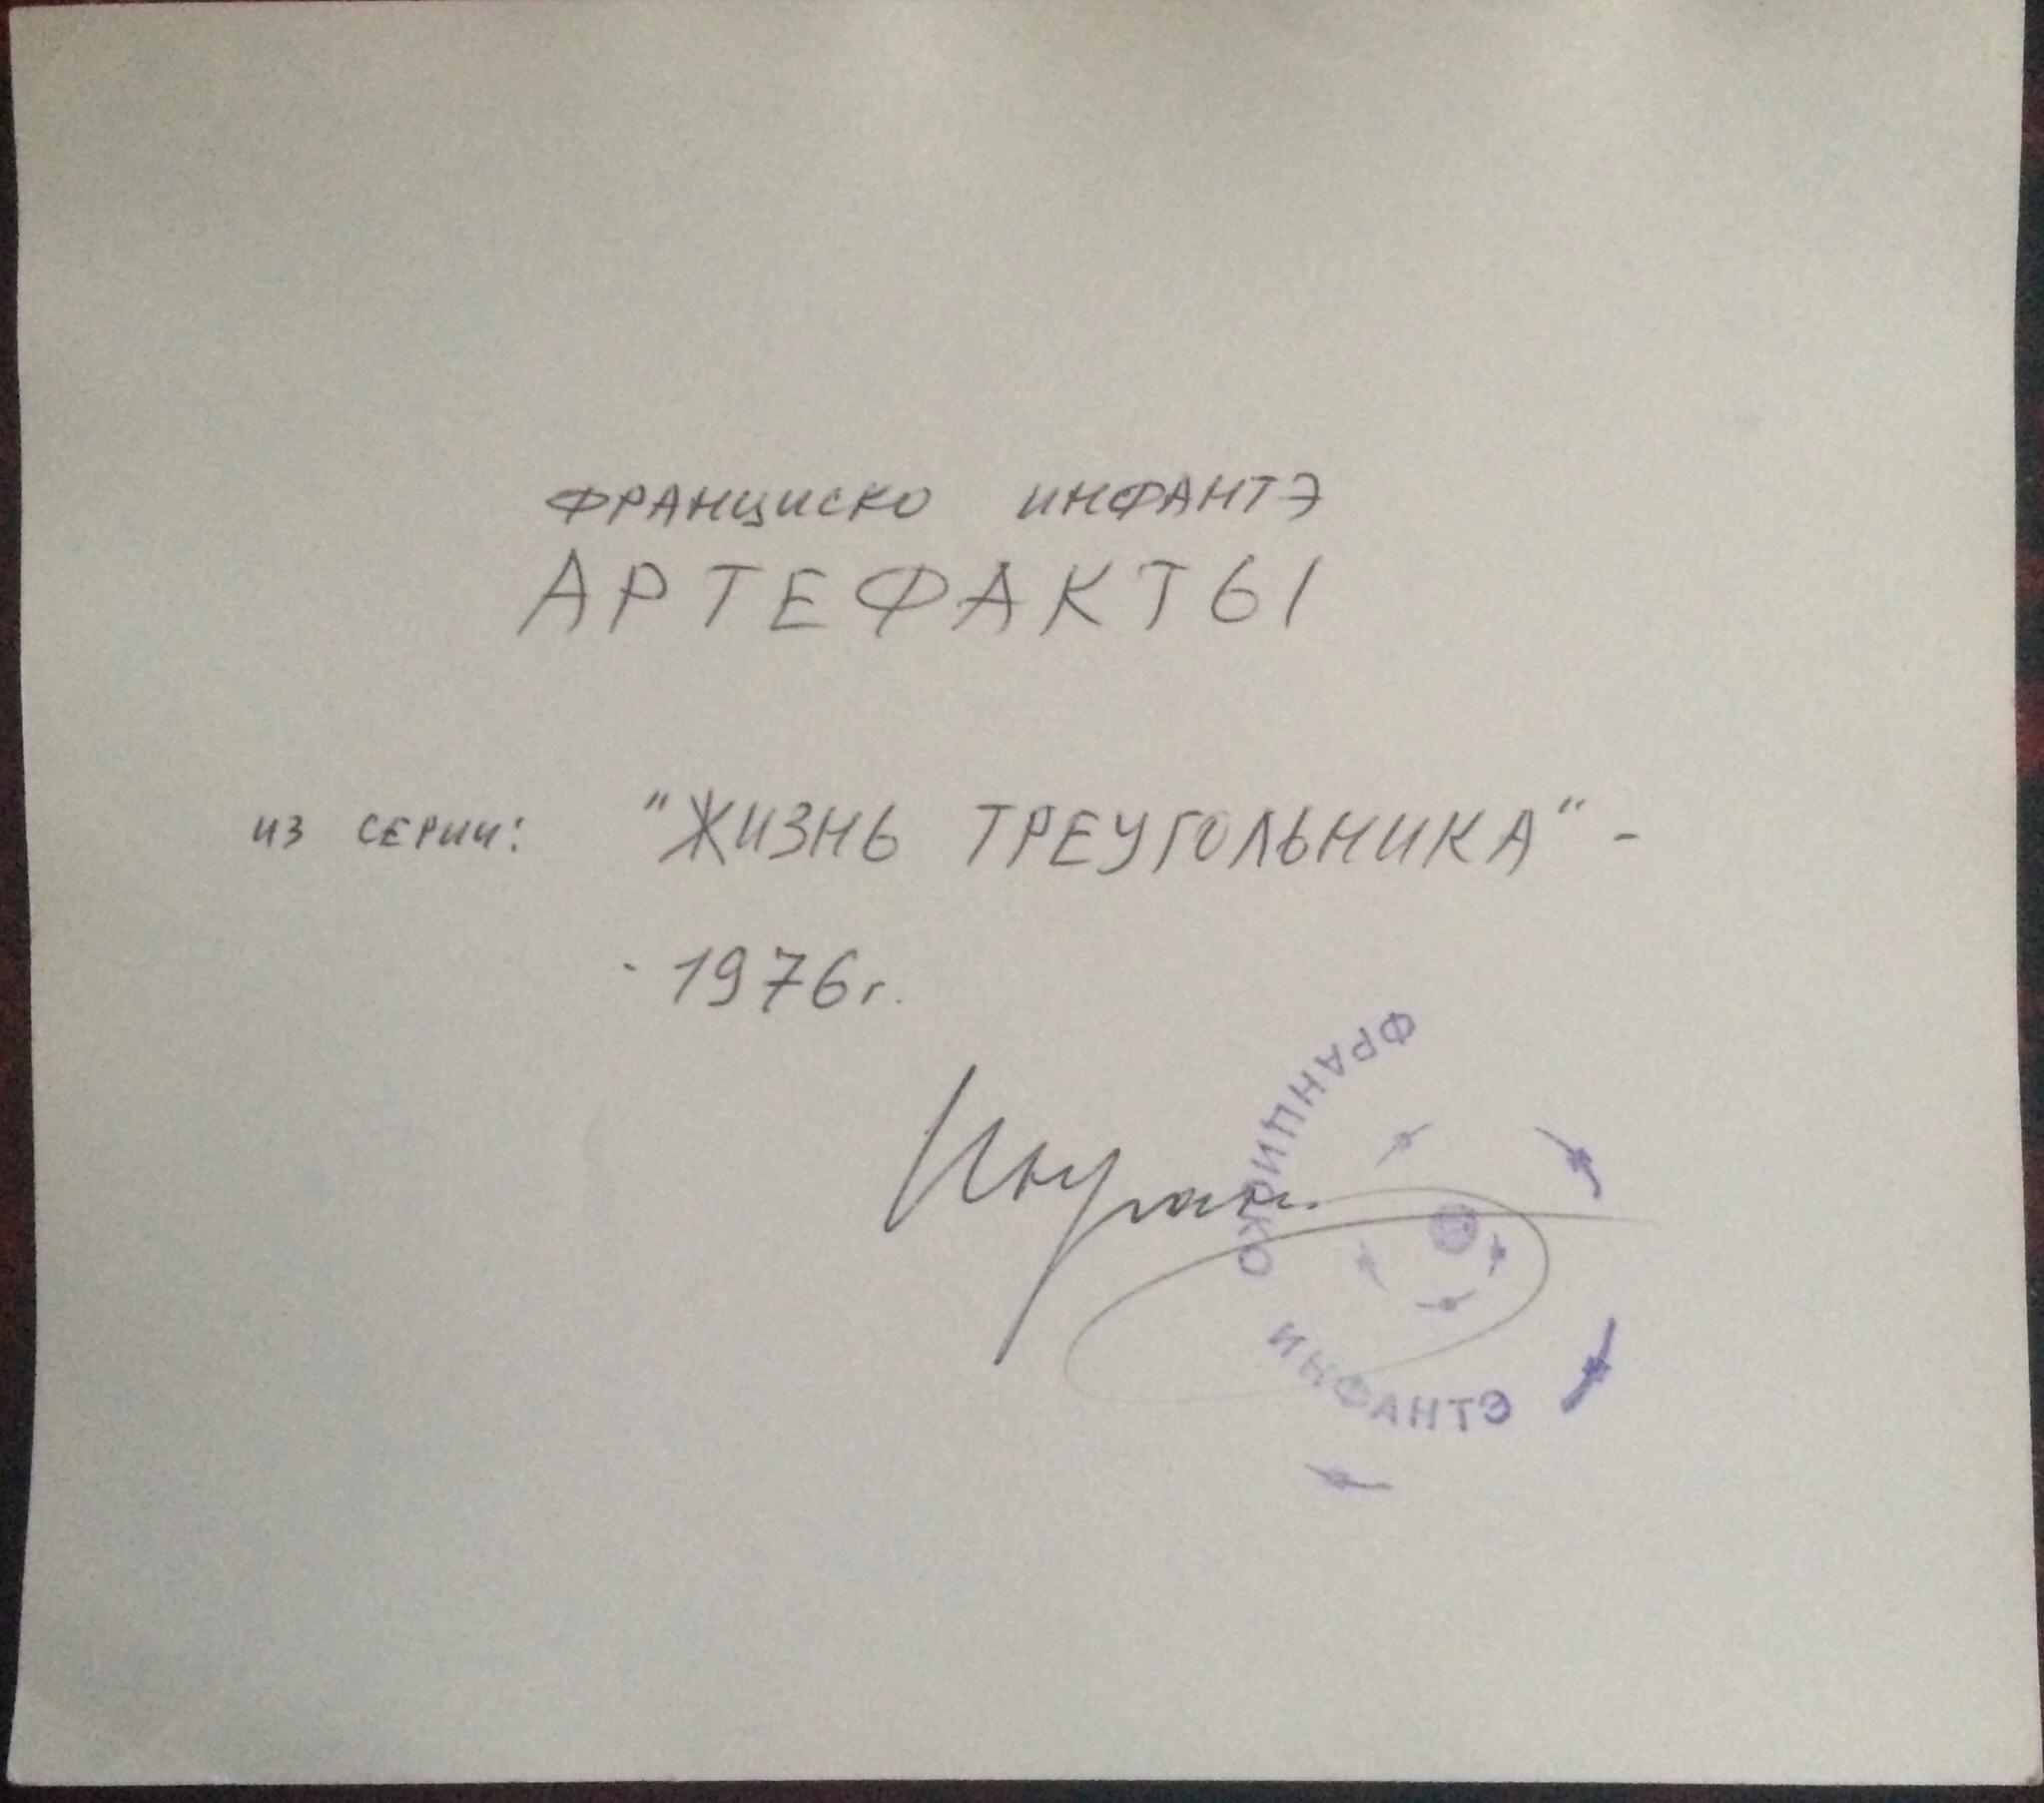 ФРАНЦИСКО ИНФАНТЭ
АРТЕФАКТЫ
ИЗ СЕРИИ: "ЖИЗНЬ ТРЕУГОЛЬНИКА" -
- 1976г.
ФРАНЦИСКО ИНФАНТЭ